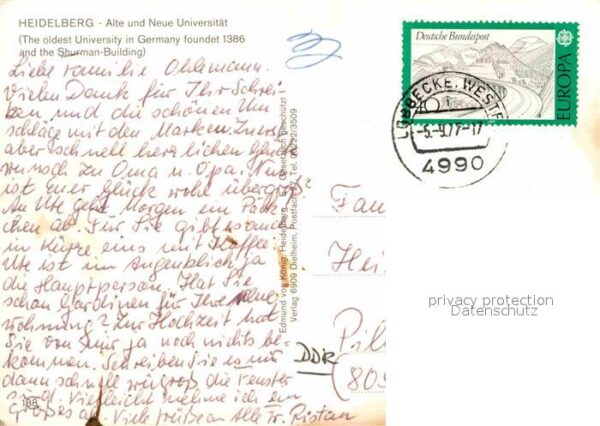 HEIDELBERG - Alte und Neue Universität
(The oldest University in Germany foundet 1386
and the Shurman-Building)
Liebe Familie Ohlemann.
Vielen Dank für Ihr Schrei-
ben und die schönen Um
schläge mit den Marken. Zuerst
aber schnell herzlichen Glück
wunsch zu Oma u. Opa. Nun
ist Euer Glück wohl übergroß?
An Ute geht Morgen ein Päck
chen ab. Für Sie gibt es auch
in Kürze eins mit Kaffee.
Ute ist im Augenblick ja
die Hauptperson. Hat Sie
schon Gardinen für Ihre neue
Wohnung? Zur Hochzeit hat
Sie von mir ja noch nichts be-
kommen. Schreiben Sie es mir
dann schnell wie groß die Fenster
sind. Vielleicht nehme ich ein
Großes ab. Viele Grüße an Alle Fr. Ristau
188
Edmund von König, Heidelberg Gesetzlich geschützt
Verlag 6909 Dielheim, Postfach Tel. 06222/3509
Deutsche Bundespost
EUROPA
40
LÜBBECKE, WESTF
-5.-9.77-17
4990
Fam
Hei
Pil
DDR
(80
privacy protection
Datenschutz